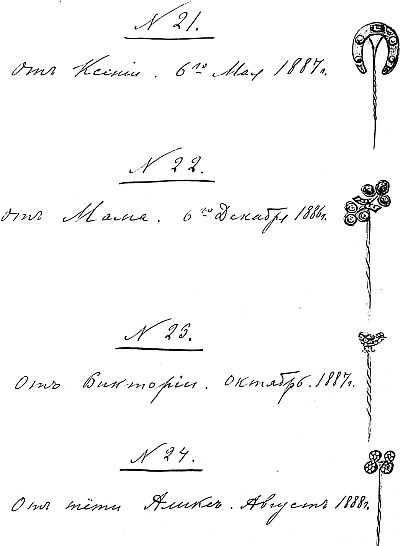 N 21.
отъ Ксеніи. 6го Мая 1887г.
N 22.
отъ Мама. 6го Декабря 1886г.
N 23.
Отъ Викторіи. октябрь. 1887г.
N 24.
Отъ тёти Аликсъ. Августъ 1888г.